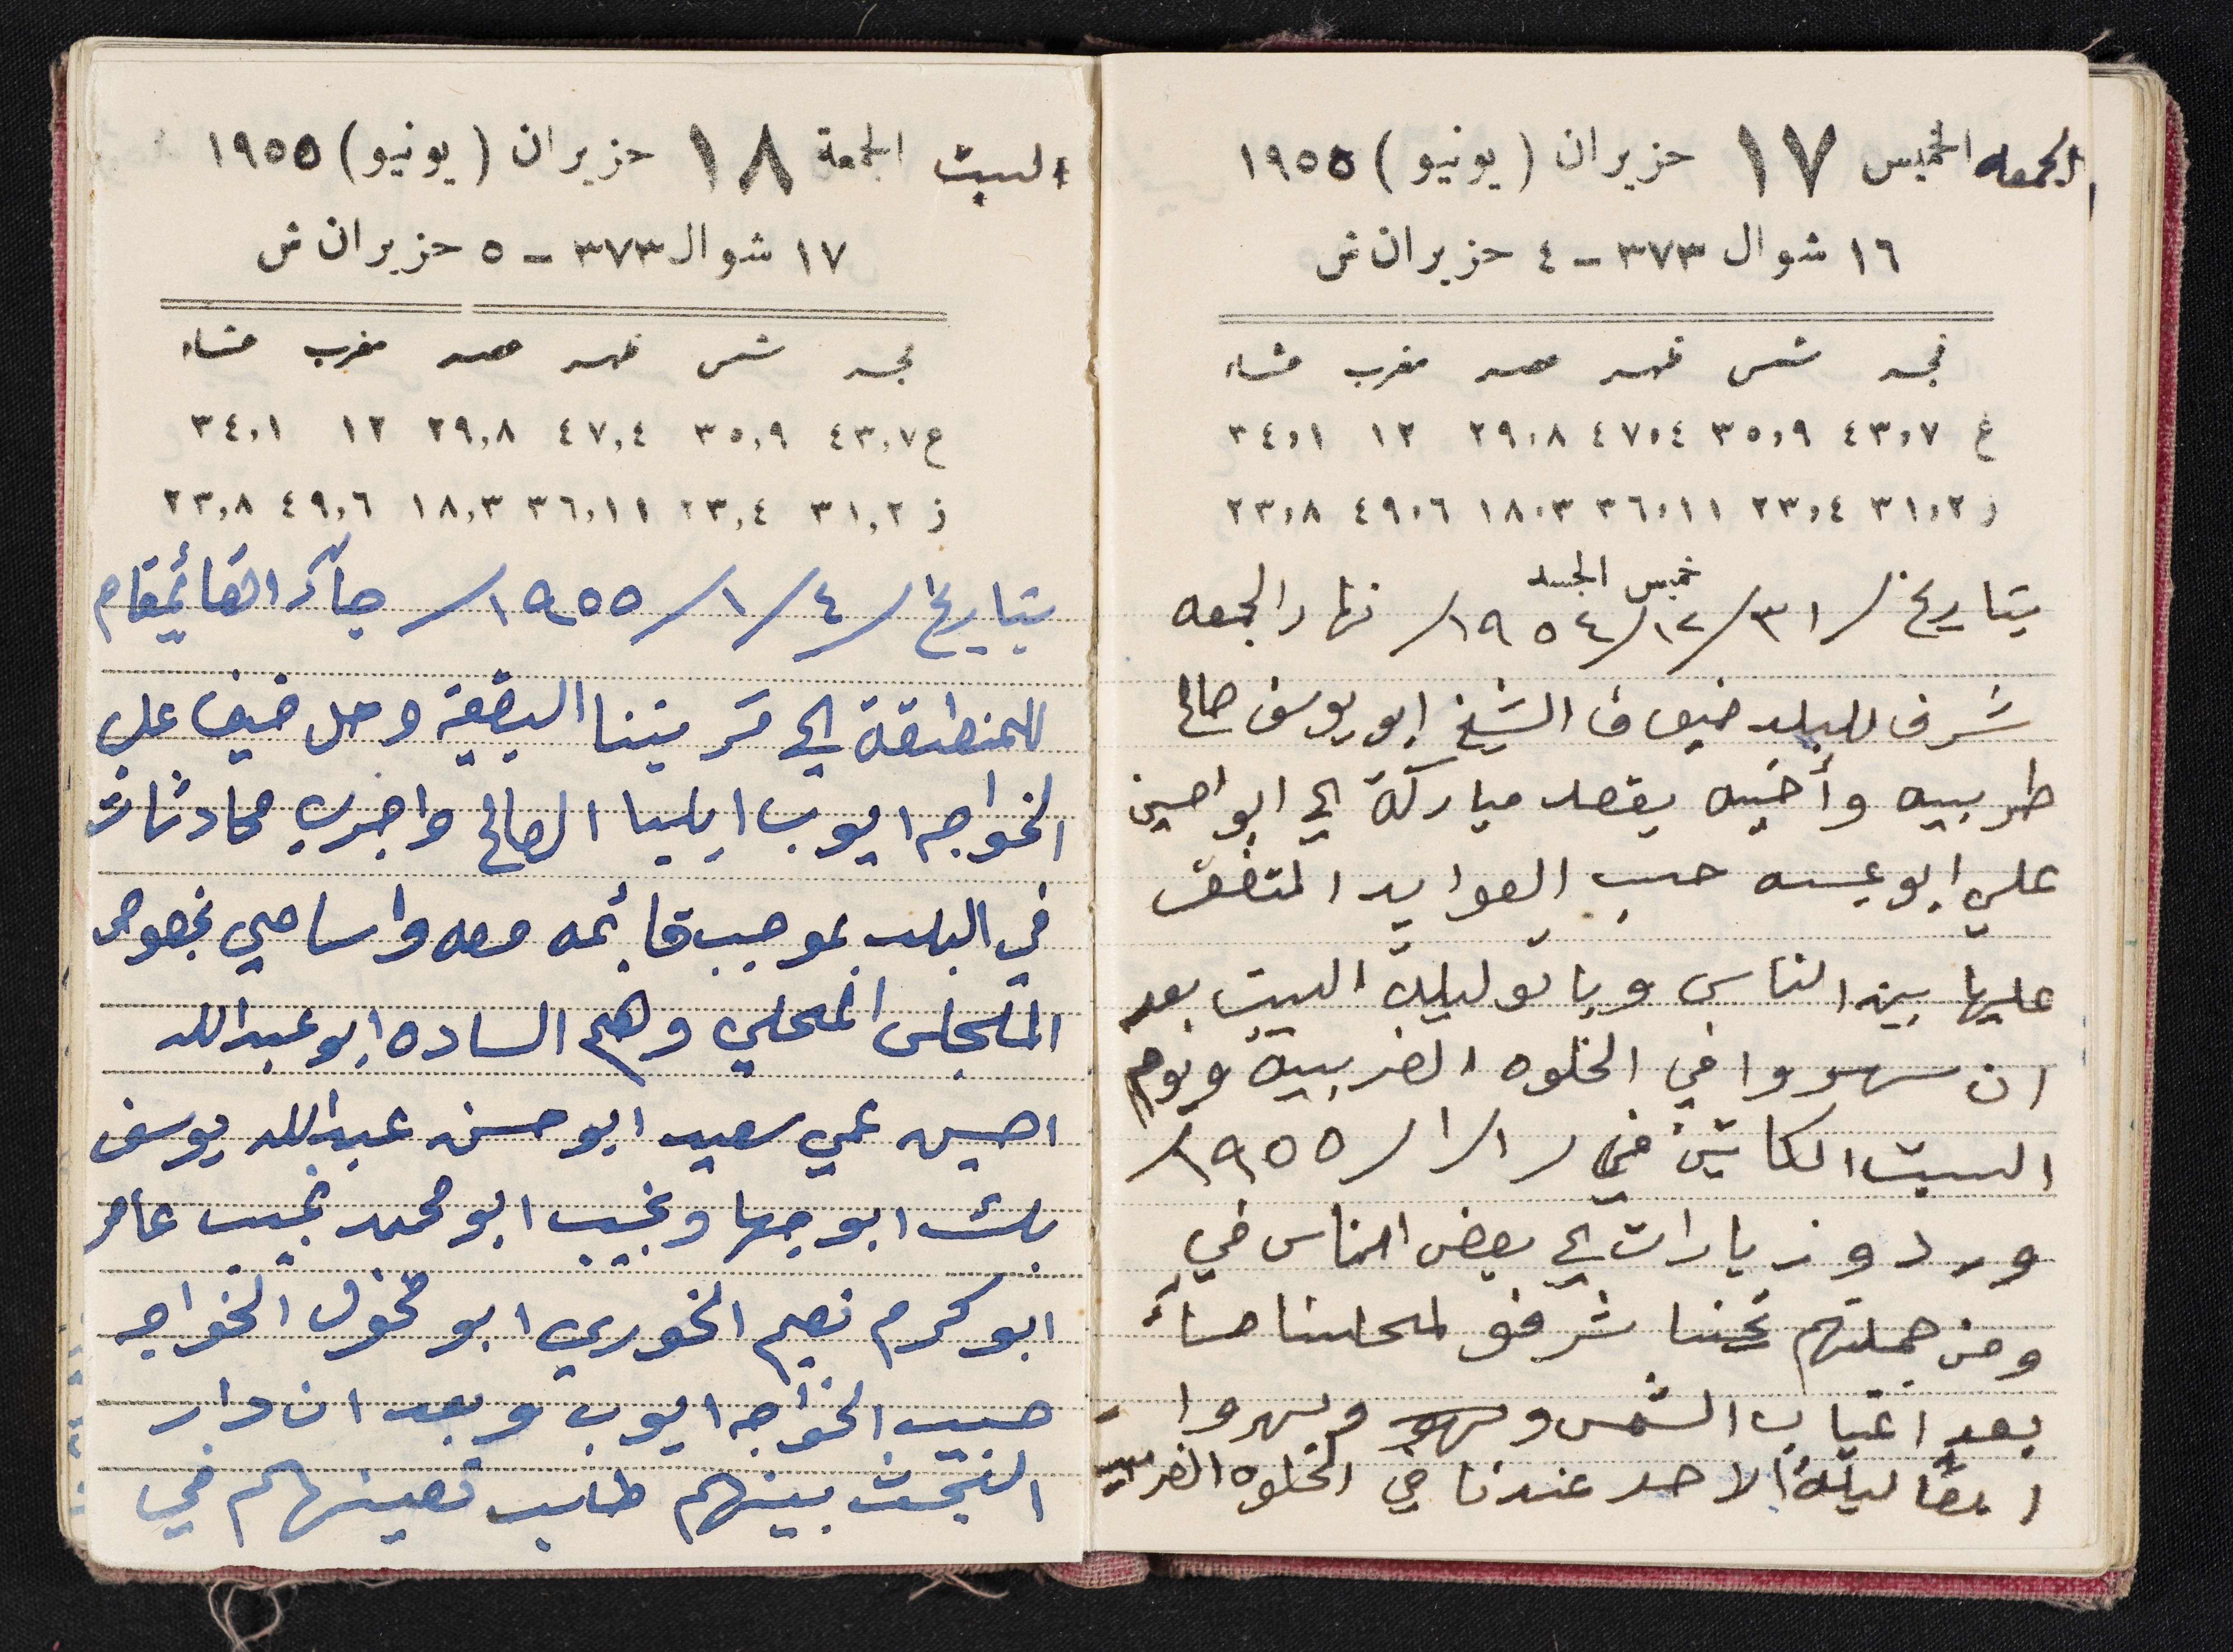 الجمعه الخميس ١٧ حزيران (يونيو) ١٩٥٥
١٦ شوال ٣٧٣ - ٤ حزيران ش
فجر شمس ظهر عصر مغرب عشاء
غ ٤٣,٧ ٣٥,٩ ٤٧,٤ ٢٩,٨ ١٢ ٣٤,١
ز ٣١,٢ ٢٣,٤ ٣٦,١١ ١٨,٣ ٤٩,٦ ٢٣,٨
خميس الجسد
بتاريخ /٣١/١٢/١٩٥٤/ نهار الجمعه
شرف للبلد ضيوفا الشيخ ابو يوسف صالح
طربيه وأخيه بقصد مباركة الى ابو احسين
علي ابو عسه حسب العوايد المتفق
عليها بين الناس وباتو ليلة السبت بعد
ان سهروا في الخلوه الغربية ويوم
السبت الكائن في /١/١/١٩٥٥/
وردو زيارات الى بعض الناس في
ومن جملتهم نحننا شرفو لمحلنا مساءً
بعد اغياب الشمس وسهرو وسهروا
ايضاً ليلة الاحد عندنا في الخلوه الغربيه
السبت الجمعة ١٨ حزيران (يونيو) ١٩٥٥
١٧ شوال ٣٧٣ - ٥ حزيران ش
فجر شمس ظهر عصر مغرب عشاء
ع ٤٣,٧ ٣٥,٩ ٤٧,٤ ٢٩,٨ ١٢ ٣٤,١
ز ٣١,٢ ٢٣,٤ ٣٦,١١ ١٨,٣ ٤٩,٦ ٢٣,٨
بتاريخ /٤/١/١٩٥٥/ جاء القائمقام
للمنطقة الى قريتنا البقيعة وحل ضيف على
الخواجه ايوب ايليا الصالح واجرى محادثات
في البلد بموجب قائمه معه واسامي بخصوص
المجلس المحلي وهم الساده ابو عبدالله
احسين علي سعيد ابو حسن عبدالله يوسف
بك ابو جهاد نجيب ابو محمد نجيب عامر
ابو كرم نعيم الخوري ابو مخول الخواجه
حبيب الخواجه ايوب وبعد ان دار
البحث بينهم طلب تعينهم في